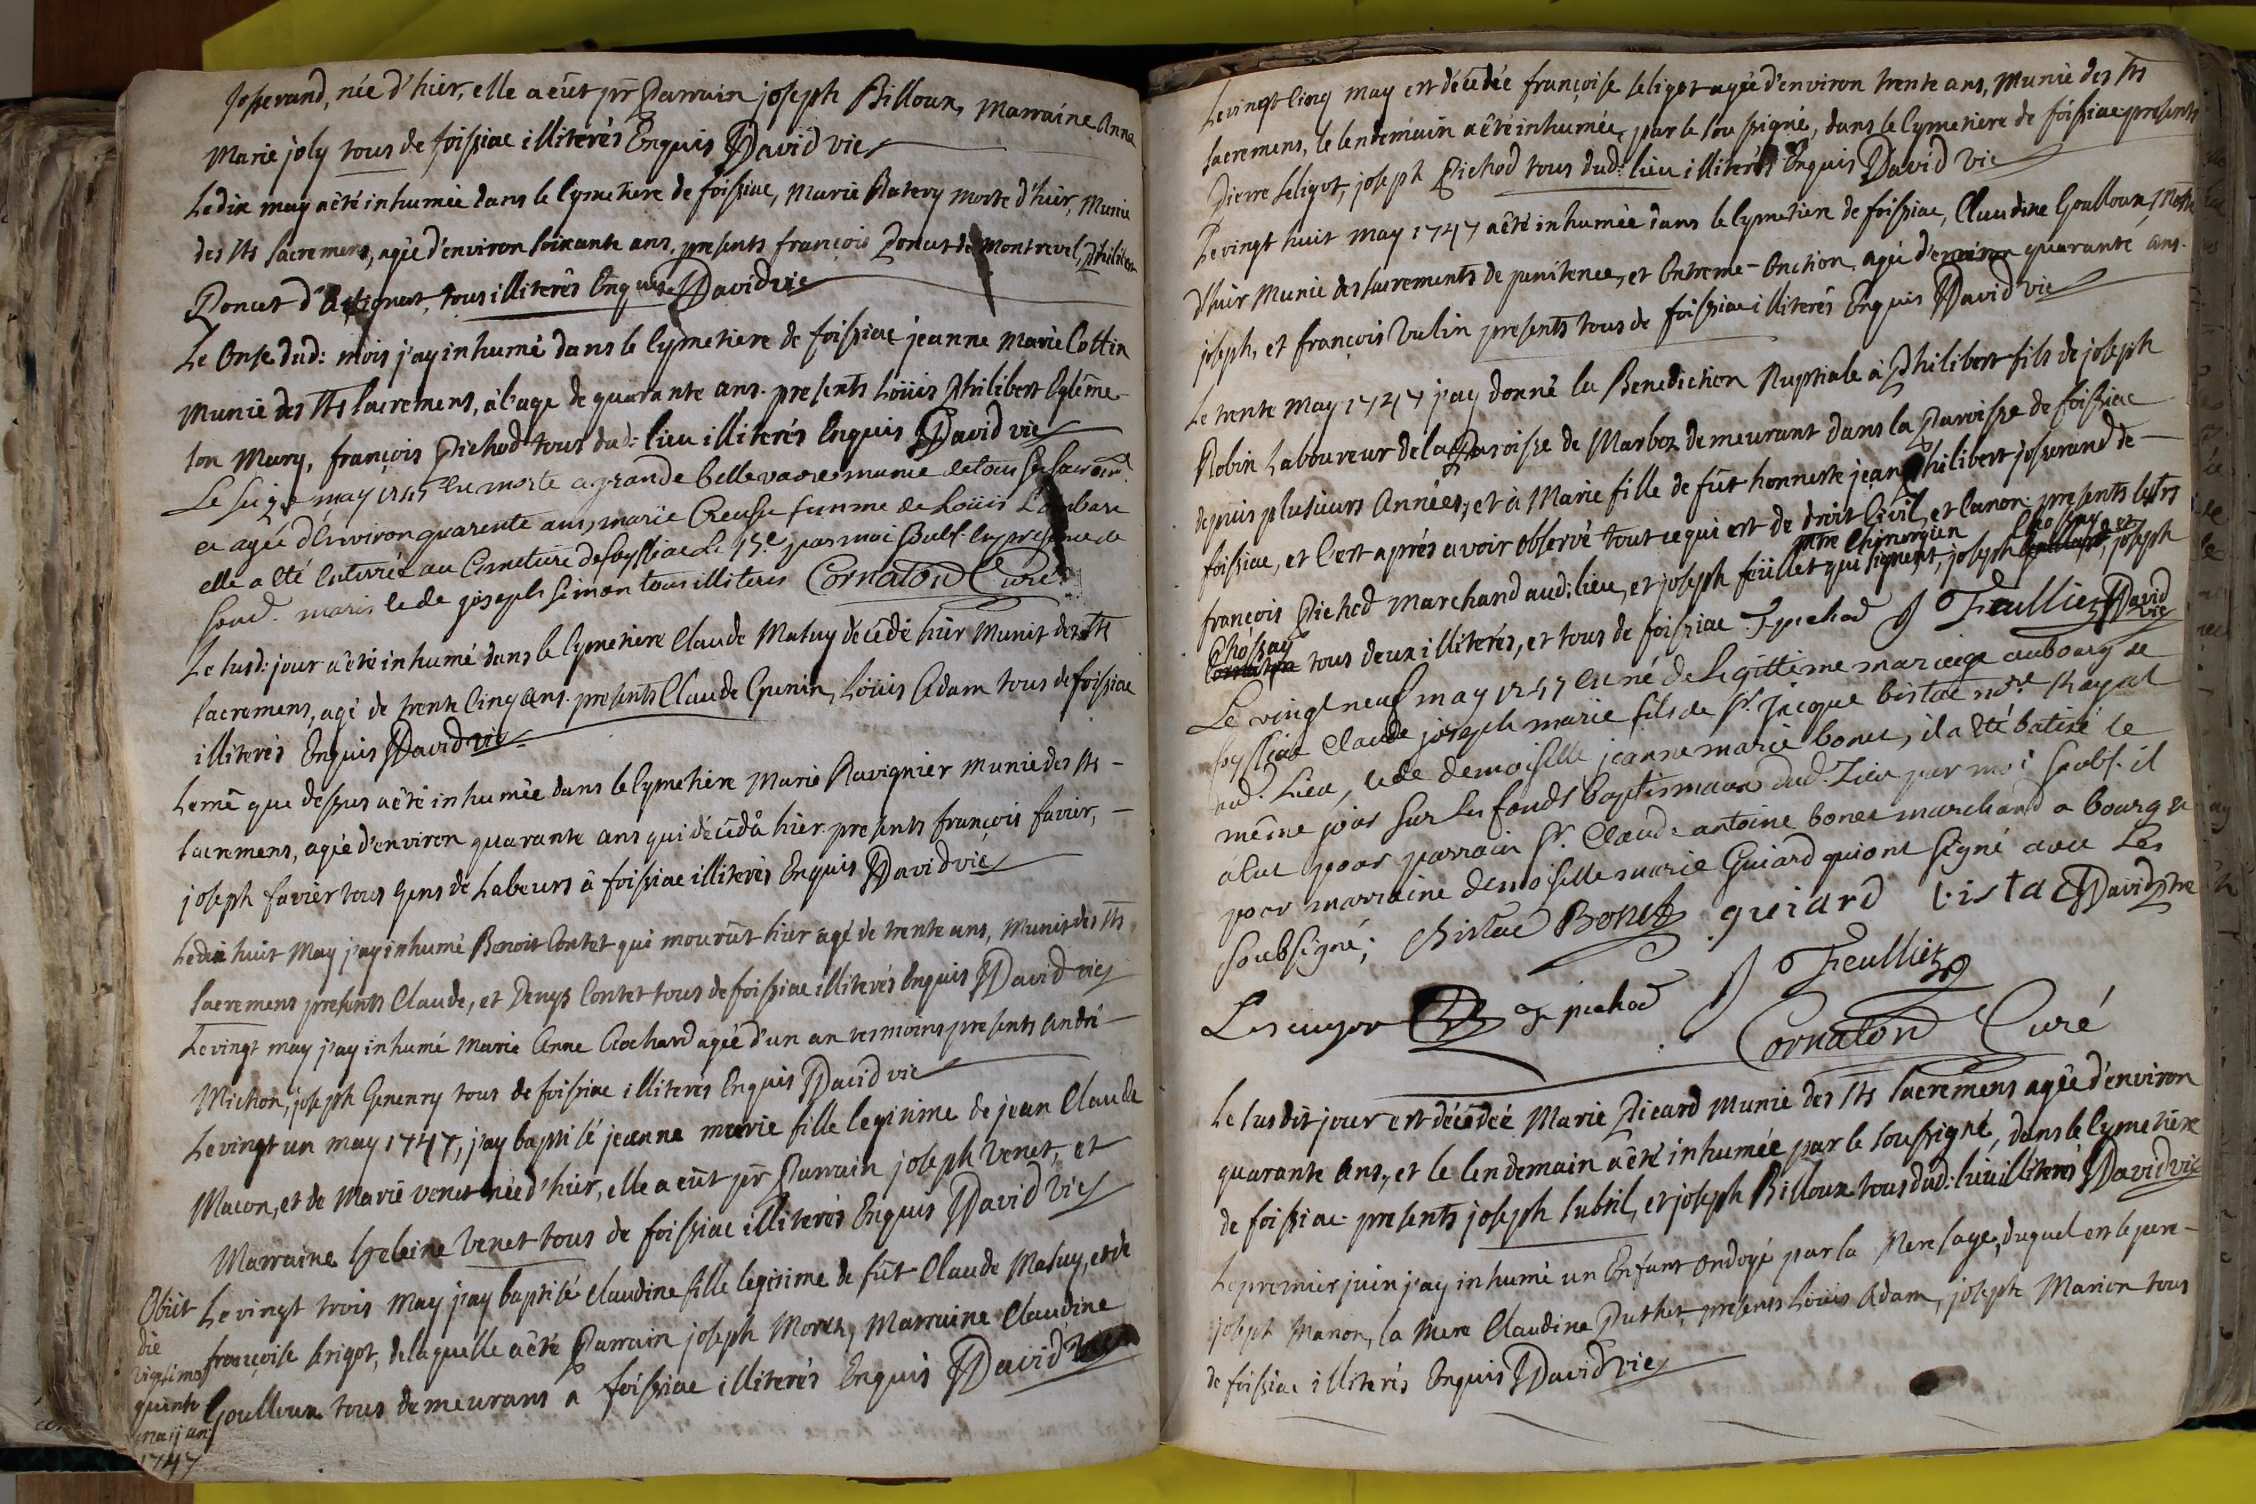 Josserand, née d'hier, elle a eüt pr Parrain joseph Billoux, Marraine Anne
Marie joly tous de foissiac illiterés Enquis David vic
Le dix may a êté inhumée dans le Cymetiere de foissiac, Marie Ratery morte d'hier, Munie
des sts sacremens, agée d'environ soixante ans, presents françois Poncet de Montrevel, Philibert
Poncet d' tous illiterés Enquis David vic
Le Onse dud: mois j'ay inhumé dans le Cymetiere de foissiac jeanne Marie Cottin
Munie des sts sacremens, à l'age de quarante ans. presents Loüis Philibert
son Mary, françois Pichod tous dud: lieu illiterés Enquis David vic
Le seize may 1747 est morte a grande bellevavre munie de tous ses sacrem.
et agée d'Environ quarente ans, marie Creuse femme de Loüis Lombare
elle a eté Enterrée au Cimetiere de foyssiac Le 17e par moi soubs. En presence de
soud. maris et de joseph Simon tous illiteres Cornaton Curé
Le susd: jour a êté inhumé dans le Cymetiere Claude Matuy décédé hier Munit des sts
sacremens, agé de trente Cinq ans. presents Claude Genin, Loüis Adam tous de foissiac
illiterés Enquis David vic
Le mê que dessus a êté inhumée dans le Cymetiere Marie Ravignier Munie des sts -
sacremens, agée d'environ quarante ans qui décéda hier presents françois favier, -
joseph favier tous Gens de Labeurs à foissiac illiterés Enquis David vic
Le dix huit May j'ay inhumé Benoit Contet qui mourût hier agé de trente ans, Munit des sts
sacremens presents Claude, et Denys Contet tous de foissiac illiterés Enquis David vic
Le vingt may j'ay inhumé Marie Anne Cochard agée d'un an presents André -
Michon, joseph Genenry tous de foissiac illiteres Enquis David vic
Le vingt un may 1747, j'ay baptisé jeanne marie fille legitime de jean Claude
Macon, et de Marie Venet née d'hier, elle a eüt pr Parrain joseph Venet, et
Marraine Heleine Venet tous de foissiac illiterés Enquis David Vic
Le vingt trois May j'ay baptisé Claudine fille legitime de fût Claude Matuy, et de
françoise serigot, de laquelle a êté Parrain joseph Morel, Marraine Claudine
Goulloux tous demeurans a foissiac illiterés Enquis David
Obiit
die
vigesimo
quinto
maij an:
1747
Le vingt Cinq may est décédée françoise seligot agée d'environ trente ans, Munie des sts
sacremens, le lendemain a êté inhumée, par le soussigné, dans le Cymetiere de foissiac presents
Pierre seligot, joseph Pichod tous dud: lieu illiterés Enquis David vic
Le vingt huit may 1747 a êté inhumée dans le Cymetiere de foissiac, Claudine Goulloux, Morte
d'hier Munie des sacrements de penitence, et Extreme-Onction, agée d'environ quarante ans.
joseph, et françois Vulin presents tous de foissiac illiterés Enquis David vic
Le trente May 1747 j'ay donné la Benediction Nuptiale à Philibert fils de joseph
Robin Laboureur de la Paroisse de Marboz demeurant dans la Paroisse de foissiac
depuis plusieurs Années, et à Marie fille de fût honneste jean Philibert josserand de -
foissiac, et C'est aprés avoir observé tout ce qui est de droit Civil, et Canon. presents les srs
françois Pichod Marchand aud: lieu, et joseph feüillet mtre Chirurgien qui signent, joseph Chossay et joseph
Chossay tous deux illiterés, et tous de foissiac F pichod J Feulliet David vic
Le vingt neuf may 1747 est né de Legittime mariage au bourg de
foyssiac Claude joseph marie fils de sr. Jacque bistac nore Royal
aud. Lieu, et de demoiselle jeanne marie bonet, il a eté batisé le
même jour sur les fonds baptismaux dud. Lieu par moi soubs. il
a eut pour parrain sr. Claude antoine bonet marchand a bourg et
pour marraine demoiselle marie Guiard qui ont signé avec Les
soubsigné; Bistac Bonet guiard bistac David ptre
F pichod J Feulliet
Cornaton Curé
Le susdit jour est décédée Marie Picard Munie des sts sacremens agée d'environ
quarante ans, et le lendemain a êté inhumée par le soussigné, dans le Cymetiere
de foissiac presents joseph subtil, et joseph Billoux tous dud: lieu illiterés David vic
Le premier juin j'ay inhumé un Enfant Ondoyé par la Mere sage, duquel est le pere -
joseph Manon, la Mere Claudine Puthet, présents Loüis Adam, joseph Manon tous
de foissiac illiterés Enquis David vic